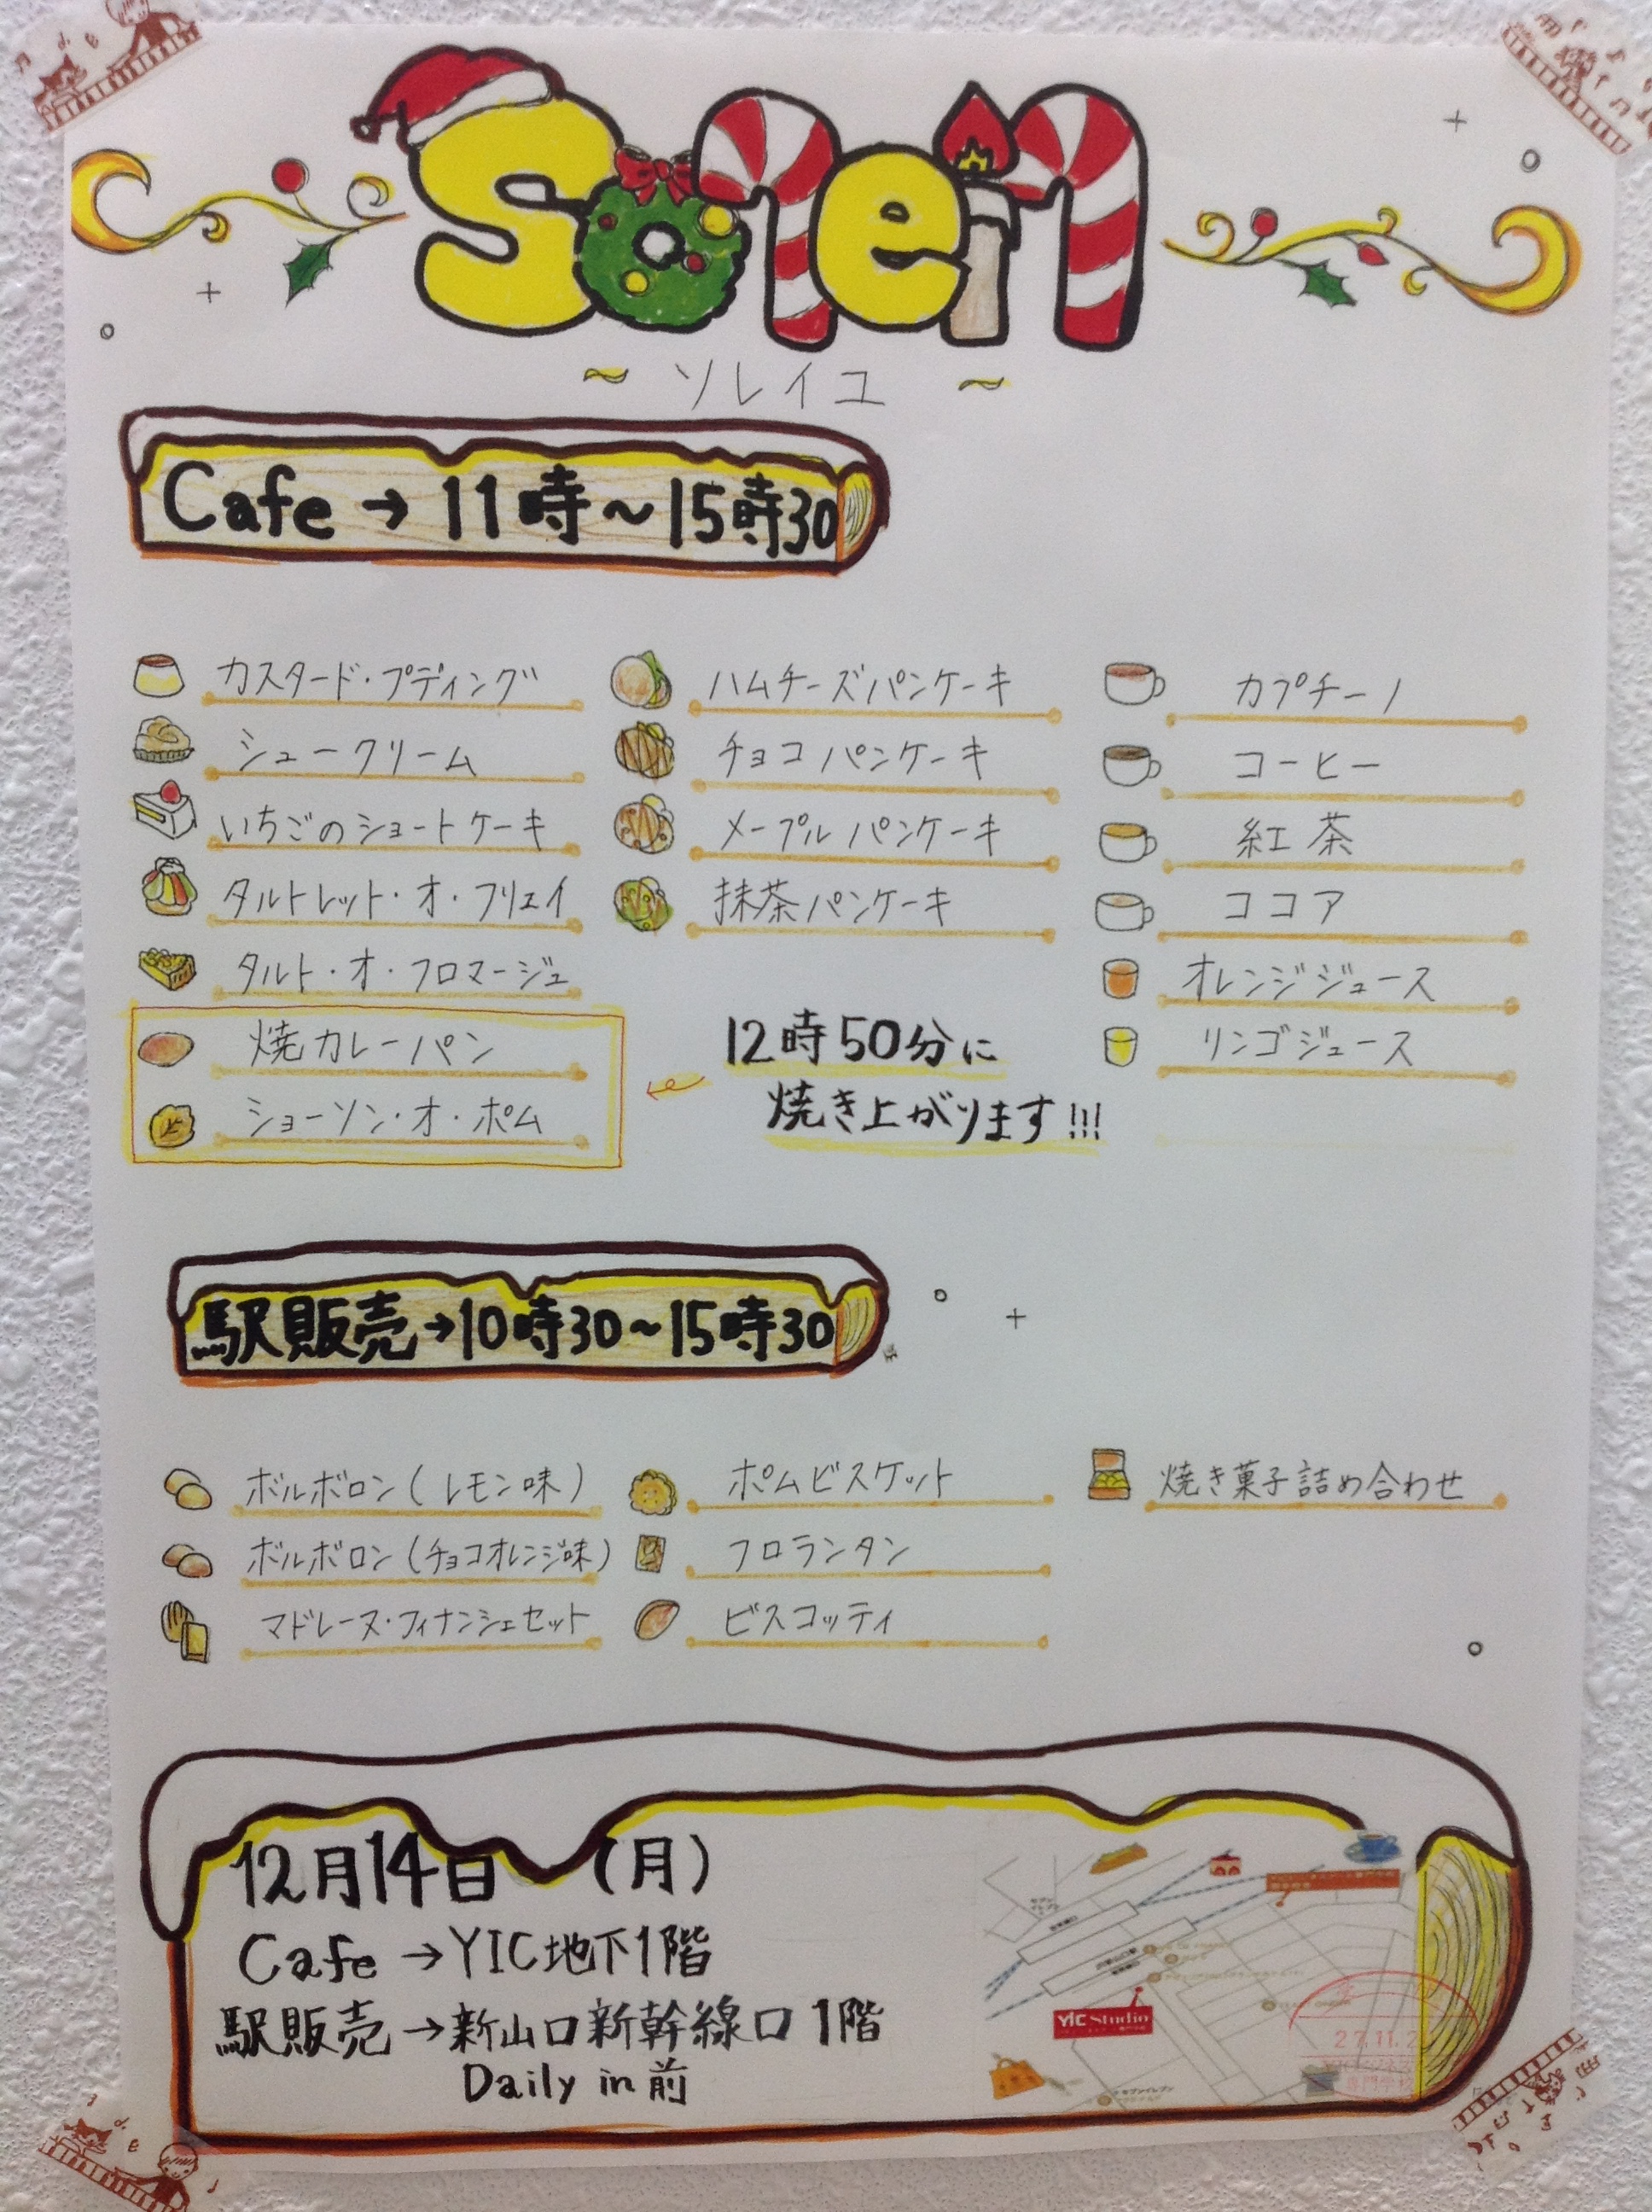 Soleil
～ ソレイユ ～
Cafe→11時～15時30
カスタード・プディング
シュークリーム
いちごのショートケーキ
タルトレット・オ・フリュイ
タルト・オ・フロマージュ
焼カレーパン
ショーソン・オ・ポム
ハムチーズパンケーキ
チョコパンケーキ
メープルパンケーキ
抹茶パンケーキ
12時50分に
焼き上がります!!!
カプチーノ
コーヒー
紅茶
ココア
オレンジジュース
リンゴジュース
駅販売→10時30～15時30
ボルボロン(レモン味)
ボルボロン(チョコオレンジ味)
マドレーヌ・フィナンシェセット
ポムビスケット
フロランタン
ビスコッティ
焼き菓子詰め合わせ
12月14日 (月)
Cafe→YIC地下1階
駅販売→新山口新幹線口1階
Daily in前
YIC Studio
27.11.2